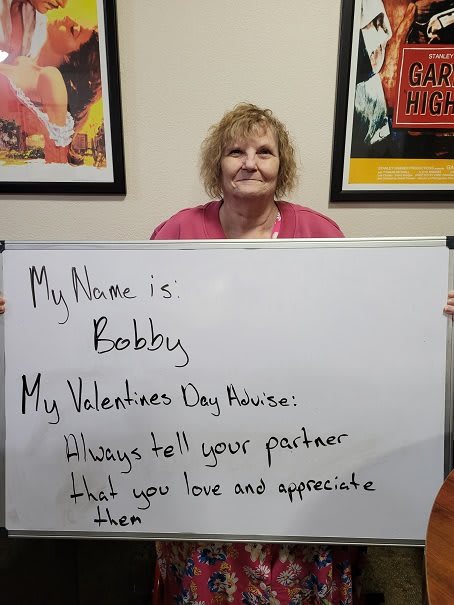 STANLEY
GAR
HIGH
My Name is:
Bobby
My Valentines Day Advise:
Always tell your partner
that you love and appreciate
them